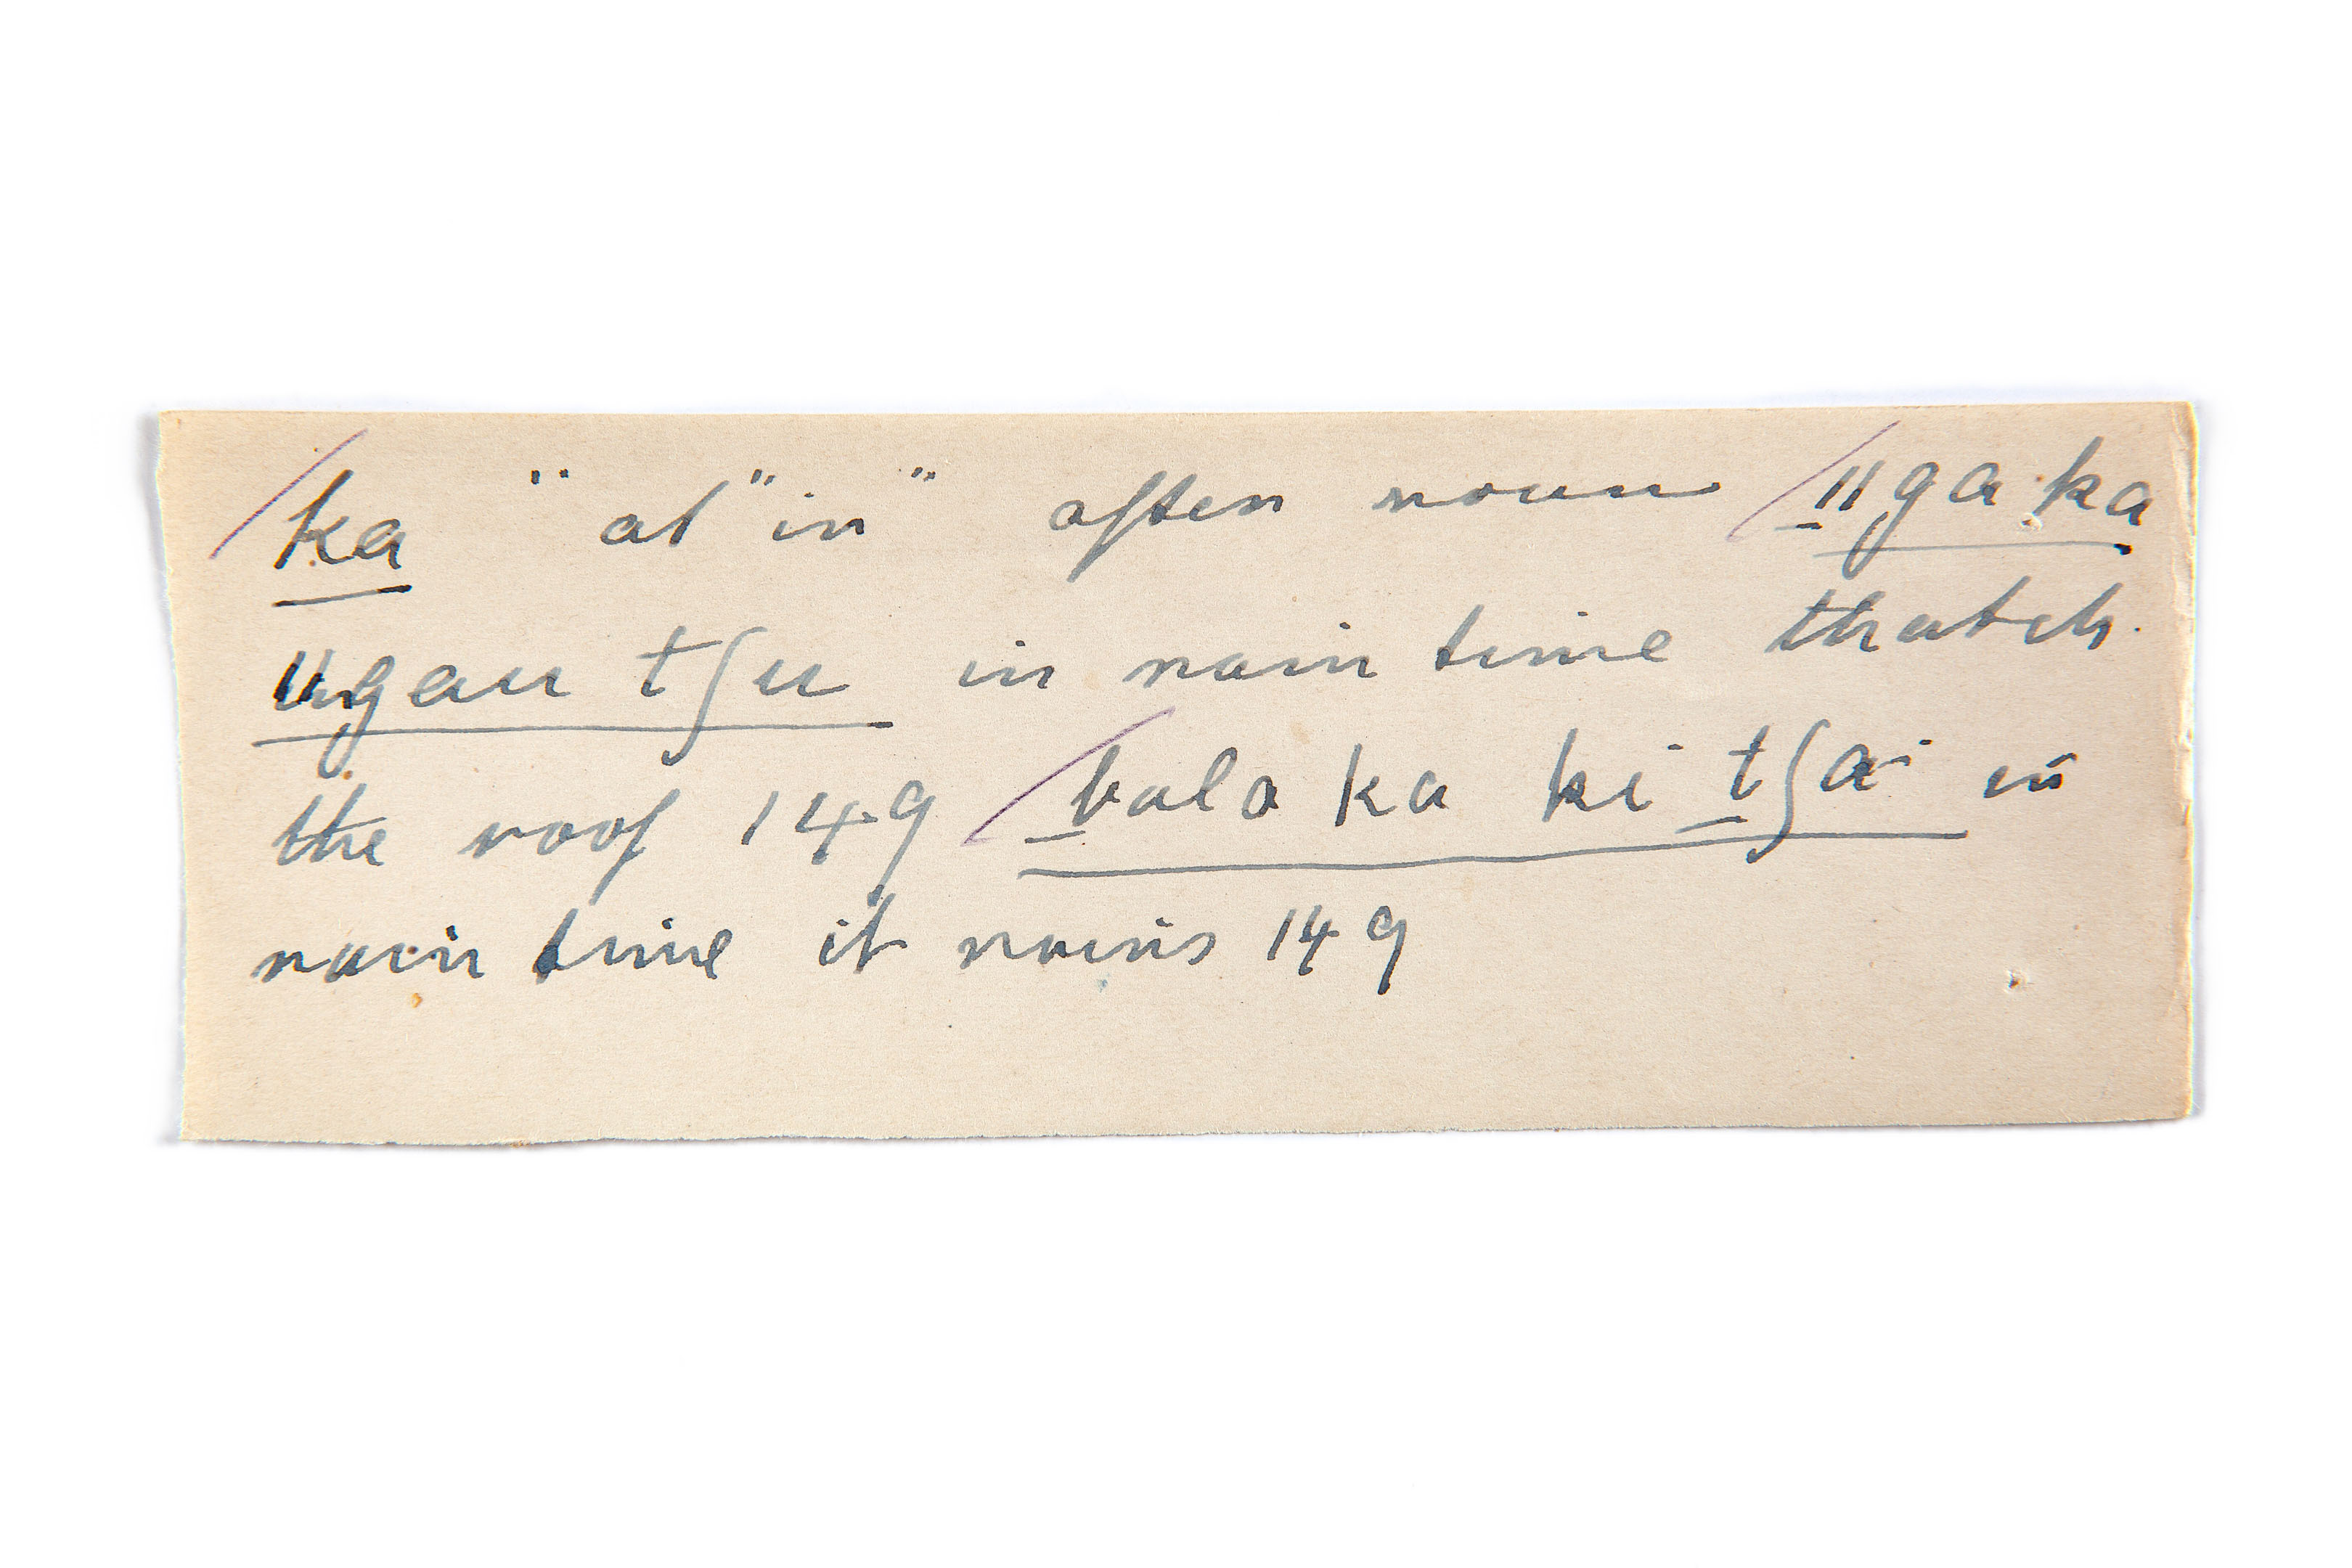 ka "at" "in" after noun ǁga ka
ǁgau tʃu in rain time thatch
the roof 149 balo ka ki tʃa in
rain time it rains 149